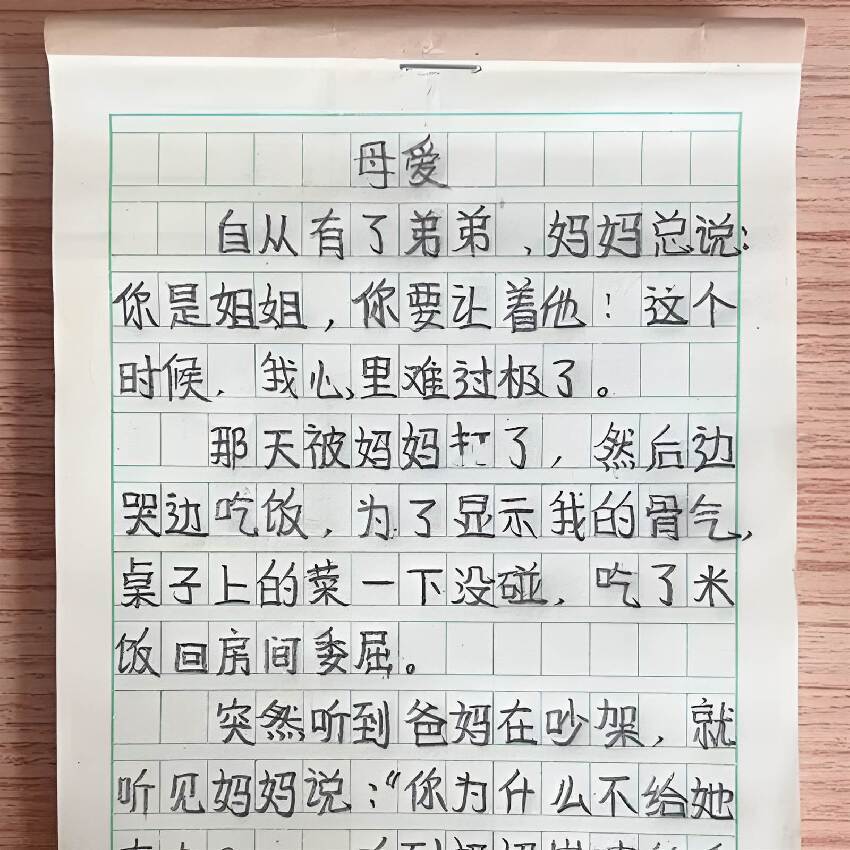 母爱
自从有了弟弟，妈妈总说：
你是姐姐，你要让着他！这个
时候，我心里难过极了。
那天被妈妈打了，然后边
哭边吃饭，为了显示我的骨气，
桌子上的菜一下没碰，吃了米
饭回房间委屈。
突然听到爸妈在吵架，就
听见妈妈说：“你为什么不给她